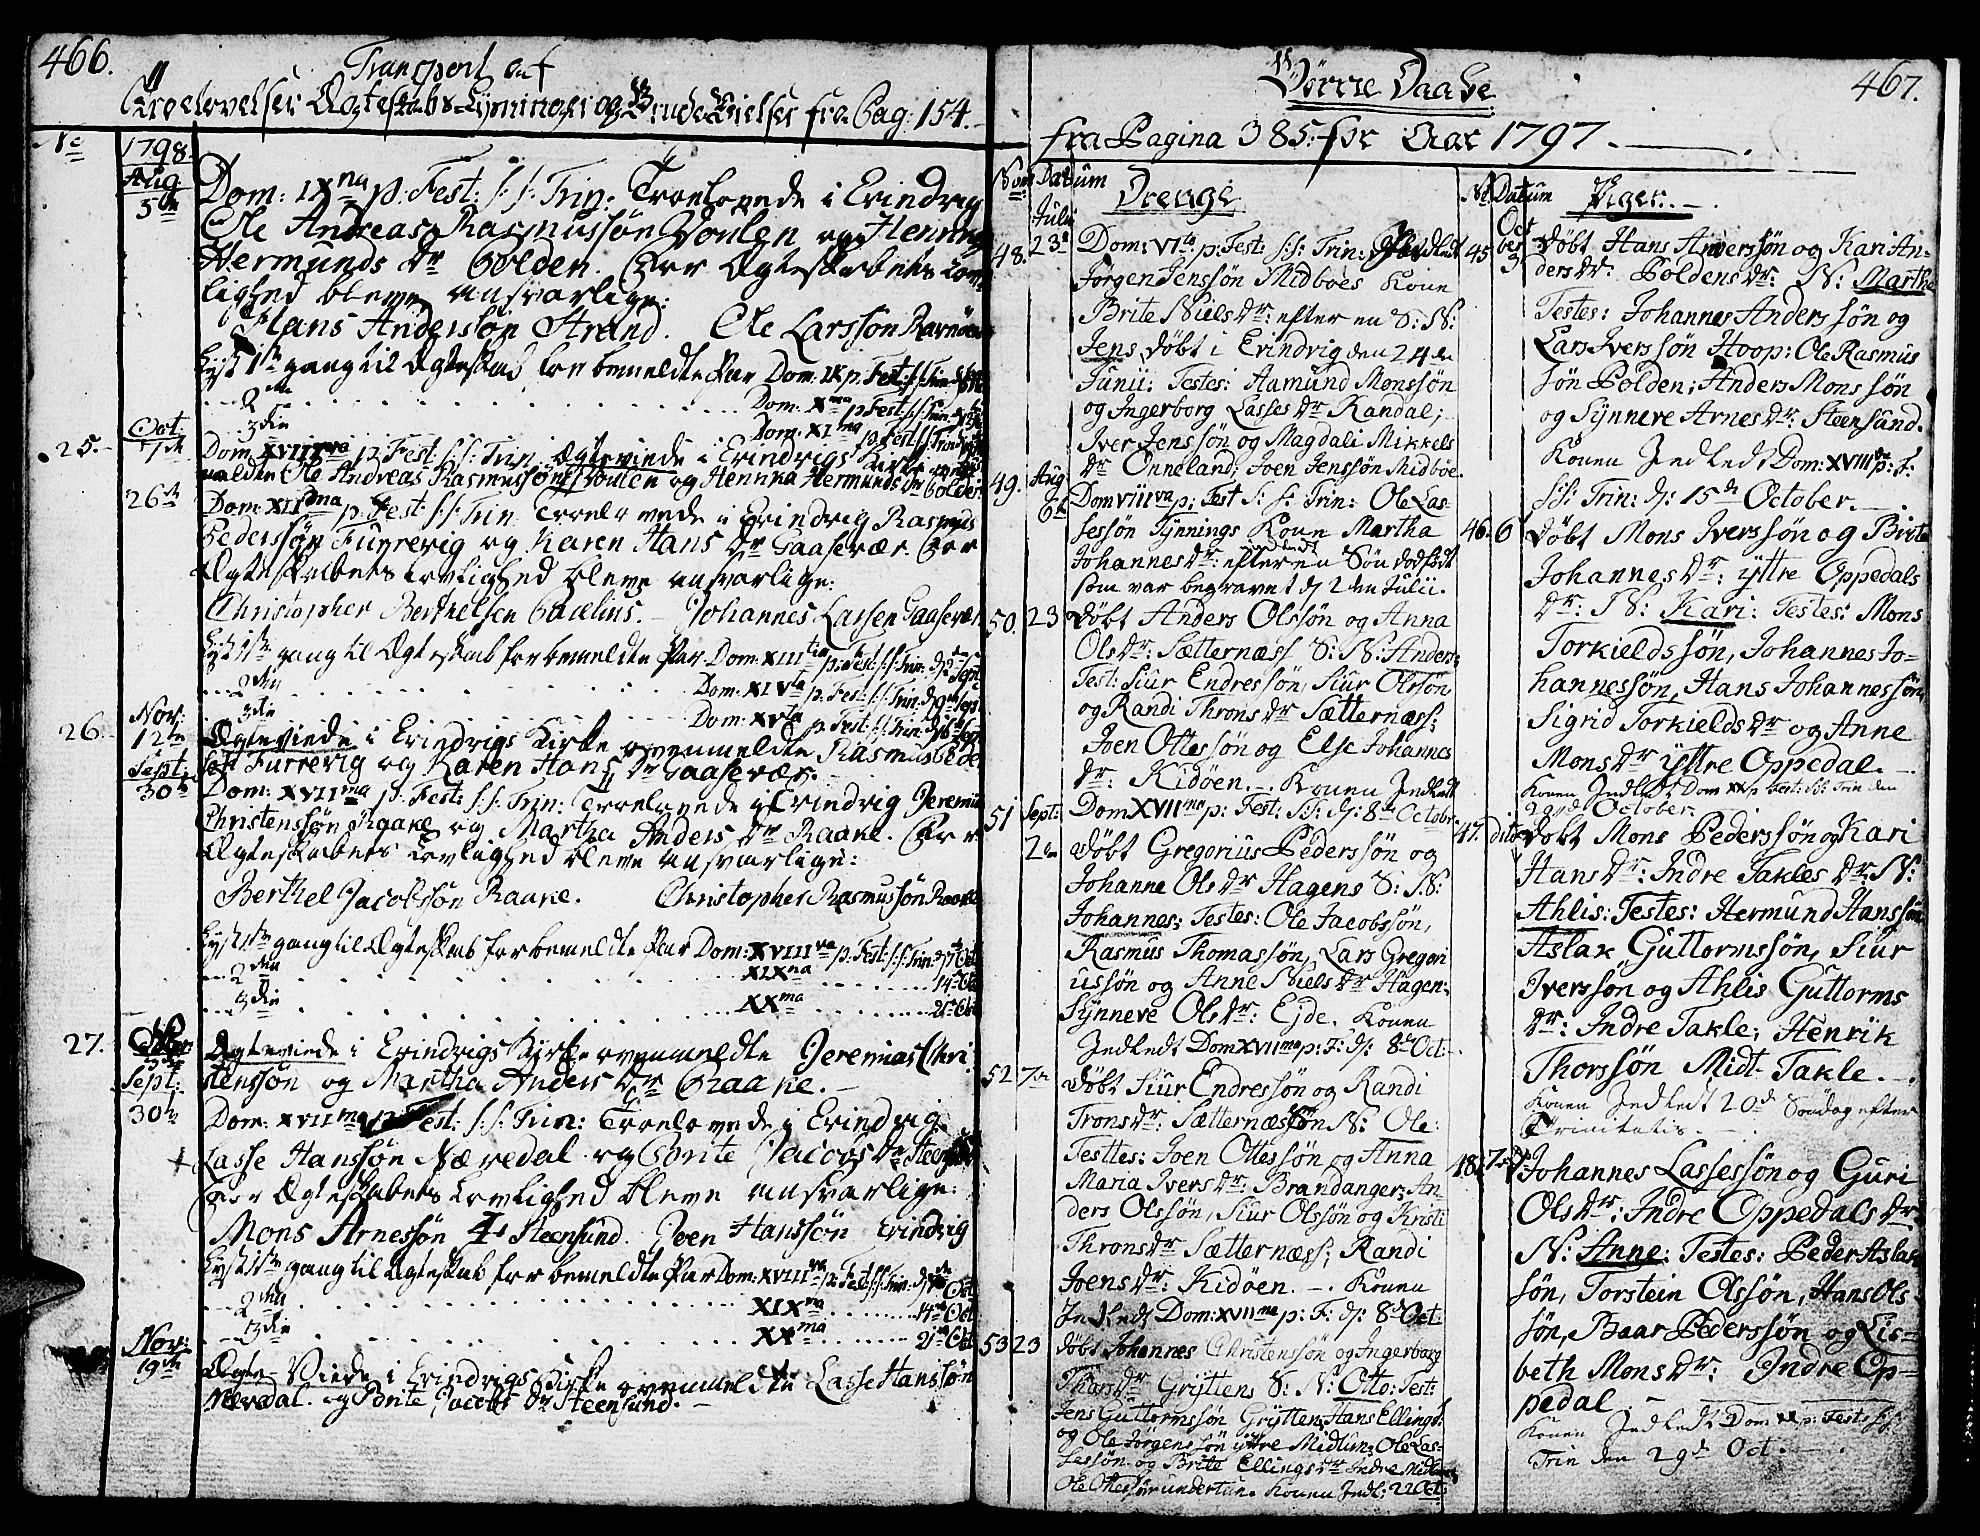 466.
Transport af
Troelovelser Ægteskabs-Lysninger og BrudeVielser fra Pag: 154.
No
1798.
Aug
5te
Dom: IXna p: Fest: s: s: Trin: Troelovede i Evindvig
Ole Andreas Rasmussøn Woulen og Henrica
Hermunds Dr Polden. For Ægteskabets Lov-
lighed bleve ansvarlige:
Hans Anderssøn Strand. Ole Larssøn Ravnøen
Lyst 1ste gang til Ægteskab for bemeldte Par Dom: IX p: Fest: s: s: Trin:
2den Dom: Xma p Fest: s: s: Trin
3die Dom: XIma p Fest: s: s: Trin
25.
Oct:
7de
Dom XVIIIva p: Fest: s: s: Trin. Ægteviede i Evindvigs Kirke oven-
meldte Ole Andreas Rasmussøn Woulen og Henrica Hermunds Dr Polden
26de
Dom: XIIma p: Fest: s: s: Trin Troelovede i Evindvig Rasmus
Pederssøn Furrevig og Karen Hans Dr Gaasevær. For
Ægteskabets Lovlighed bleve ansvarlige:
Christopher Berthelsen Johannes Larsen Gaasevær
Lyst 1ste gang til Ægteskab for bemeldte Par Dom: XIIItia p: Fest: s: s: Trin: d: Sept
2den Dom: XIVta p: Fest: s: s: Trin: d: 9 Sept
3die Dom: XVta p Fest: s: s: Trin: d: 16 Sept
26.
Nov:
12te
Ægteviede i Evindvigs Kirke ovenmeldte Rasmus Peder-
søn Furrevig og Karen Hans Dr Gaasevær.
Sept:
30te
Dom: XVIIma p: Fest: s: s: Trin: Troelovede i Evindvig Jeremias
Christenssøn Raake og Martha Anders Dr Raake. For
Ægteskabets Lovlighed bleve ansvarlige:
Berthel Jacobsøn Raake. Christopher Rasmussøn Raake
Lyst 1ste gang til Ægteskab for bemeldte Par Dom: XVIIIva p: Fest: s: s: Trin: d: 7 Oct
2den XIXna 14de Oct
3die XXma 21de Oct
27.
Ægteviede i Evindvigs Kirke ovenmeldte Jeremias Chri-
stenssøn og Martha Anders Dr Raake.
Sept:
30te
Dom: XVIIma p: Fest: s: s: Trin: Troelovede i Evindvig
Lasse Hanssøn Næredal og Borite Jacobs Dr Steensund
For Ægteskabets Lovlighed bleve ansvarlige:
Mons Arnessøn Steensund. Joen Hanssøn Evindvig
Lyst 1ste gang til Ægteskab for bemeldte Par Dom: XVIIIva p: Fest: s: s: Trin: d: 7de Oct
2den XIXna 14de Oct
3die XXma 21de Oct
Nov:
19de
Ægte-Viede i Evindvigs Kirke ovenmeldte Lasse Hanssøn
Næredal og Borite Jacobs Dr Steensund.
467.
Børne Daabe
fra Pagina 385: for Aar 1797.
Num Datum Drenge
Julii
48. 23de Dom: VIta p: Fest: s: s: Trin:
Jørgen Jenssøn Midbøes Kone
Brite Niels Dr: efter en S: N:
Jens døbt i Evindvig den 24de
Junii: Testes: Aamund Monssøn
og Ingerborg Lasses Dr Randal;
Iver Jenssøn og Magdali Mikkels
Dr Onneland; Joen Jenssøn Midbøe.
49. Aug
6te Dom VIIIva p: Fest s: s: Trin: Ole Las-
sessøn Tynnings Kone Martha
Johannes Dr: efter en Søn dødfødt
som var begravet d: 2den Julii.
50. 23 Døbt Anders Olssøn og Anna
Ols Dr: Sætternæss S: N: Anders:
Test: Siur Endressøn, Siur Olssøn
og Randi Throns Dr Sætternæss;
Joen Ottessøn og Else Johannes
Dr: Kidøen. Konen Indledt
Dom XVIIma p: Fest: s: s: d: 8de Octobr.
51 Sept:
2den Døbt Gregorius Pederssøn og
Johanne Ols Dr Hagens S: N:
Johannes; Testes: Ole Jacobssøn,
Rasmus Thomassøn, Lars Gregori
ussøn og Anne Niels Dr Hagen;
Synneve Ols Dr: Eide. Konen
Indledt Dom XVIIma p: F: d: 8de Oct:
52 7de Døbt Siur Endressøn og Randi
Trons Dr: Sætternæs Søn N: Ole:
Testtes: Joen Ottessøn og Anna
Maria Ivers Dr: Brandanger; An-
ders Olssøn, Siur Olssøn og Kristi
Throns Dr Sætternæss; Randi
Joens Dr: Kidøen. Konen
Indledt Dom: XVIIma p: F: d: 8de Oct
53 23 døbt Johannes Christenssøn og Ingerborg
Thars Dr Gryttens S: N: Otto: Test:
Jens Guttormssøn Grytten, Hans Ellings
og Ole Jørgenssøn yttre Midtun; Ole Las-
sessøn og Brite Ellings Dr Indre Midtun
Ole Ottessøn undertun. Konen Indl: 22 Oct:
No Datum Piger.
Octo
ber
45 3 Døbt Hans Anderssøn og Kari An-
ders Dr: Poldens Dr: N: Marthe
Testes: Johannes Anderssøn og
Lars Iverssøn Hoop; Ole Rasmus
søn Polden; Anders Monssøn
og Synneve Arnes Dr: Steensund.
Konen Indledt Dom: XVIII p: F:
s: s: Trin: d: 15de October.
46. 6 Døbt Mons Iverssøn og Brite
Johannes Dr: yttre Oppedals
Dr: N: Kari: Testes: Mons
Torkieldssøn, Johannes Jo-
hannessøn, Hans Johannessøn,
Sigrid Torkields Dr og Anne
Mons Dr yttre Oppedal.
Konen Indledt Dom XX p: Fest: s: s: Trin den
29de October.
47. dito Døbt Mons Pederssøn og Kari
Hans Dr: Indre Takles Dr: N:
Ahlis: Testes: Hermund Hanssøn
Aslak Guttormssøn, Siur
Iverssøn og Ahlis Guttorms
Dr: Indre Takle; Henrik
Thorssøn Midt-Takle.
Konen Indledt 20de Søndag efter
Trinitatis.
48. 7de Johannes Lassessøn og Guri
Ols Dr: Indre Oppedals Dr
N: Anne: Testes: Peder Aslak
søn, Torstein Olssøn, Hans Ols-
søn, Baar Pederssøn og Lis-
beth Mons Dr: Indre Op-
pedal.
Konen Indledt Dom XX p: Fest: s: s:
Trin den 29de Oct.